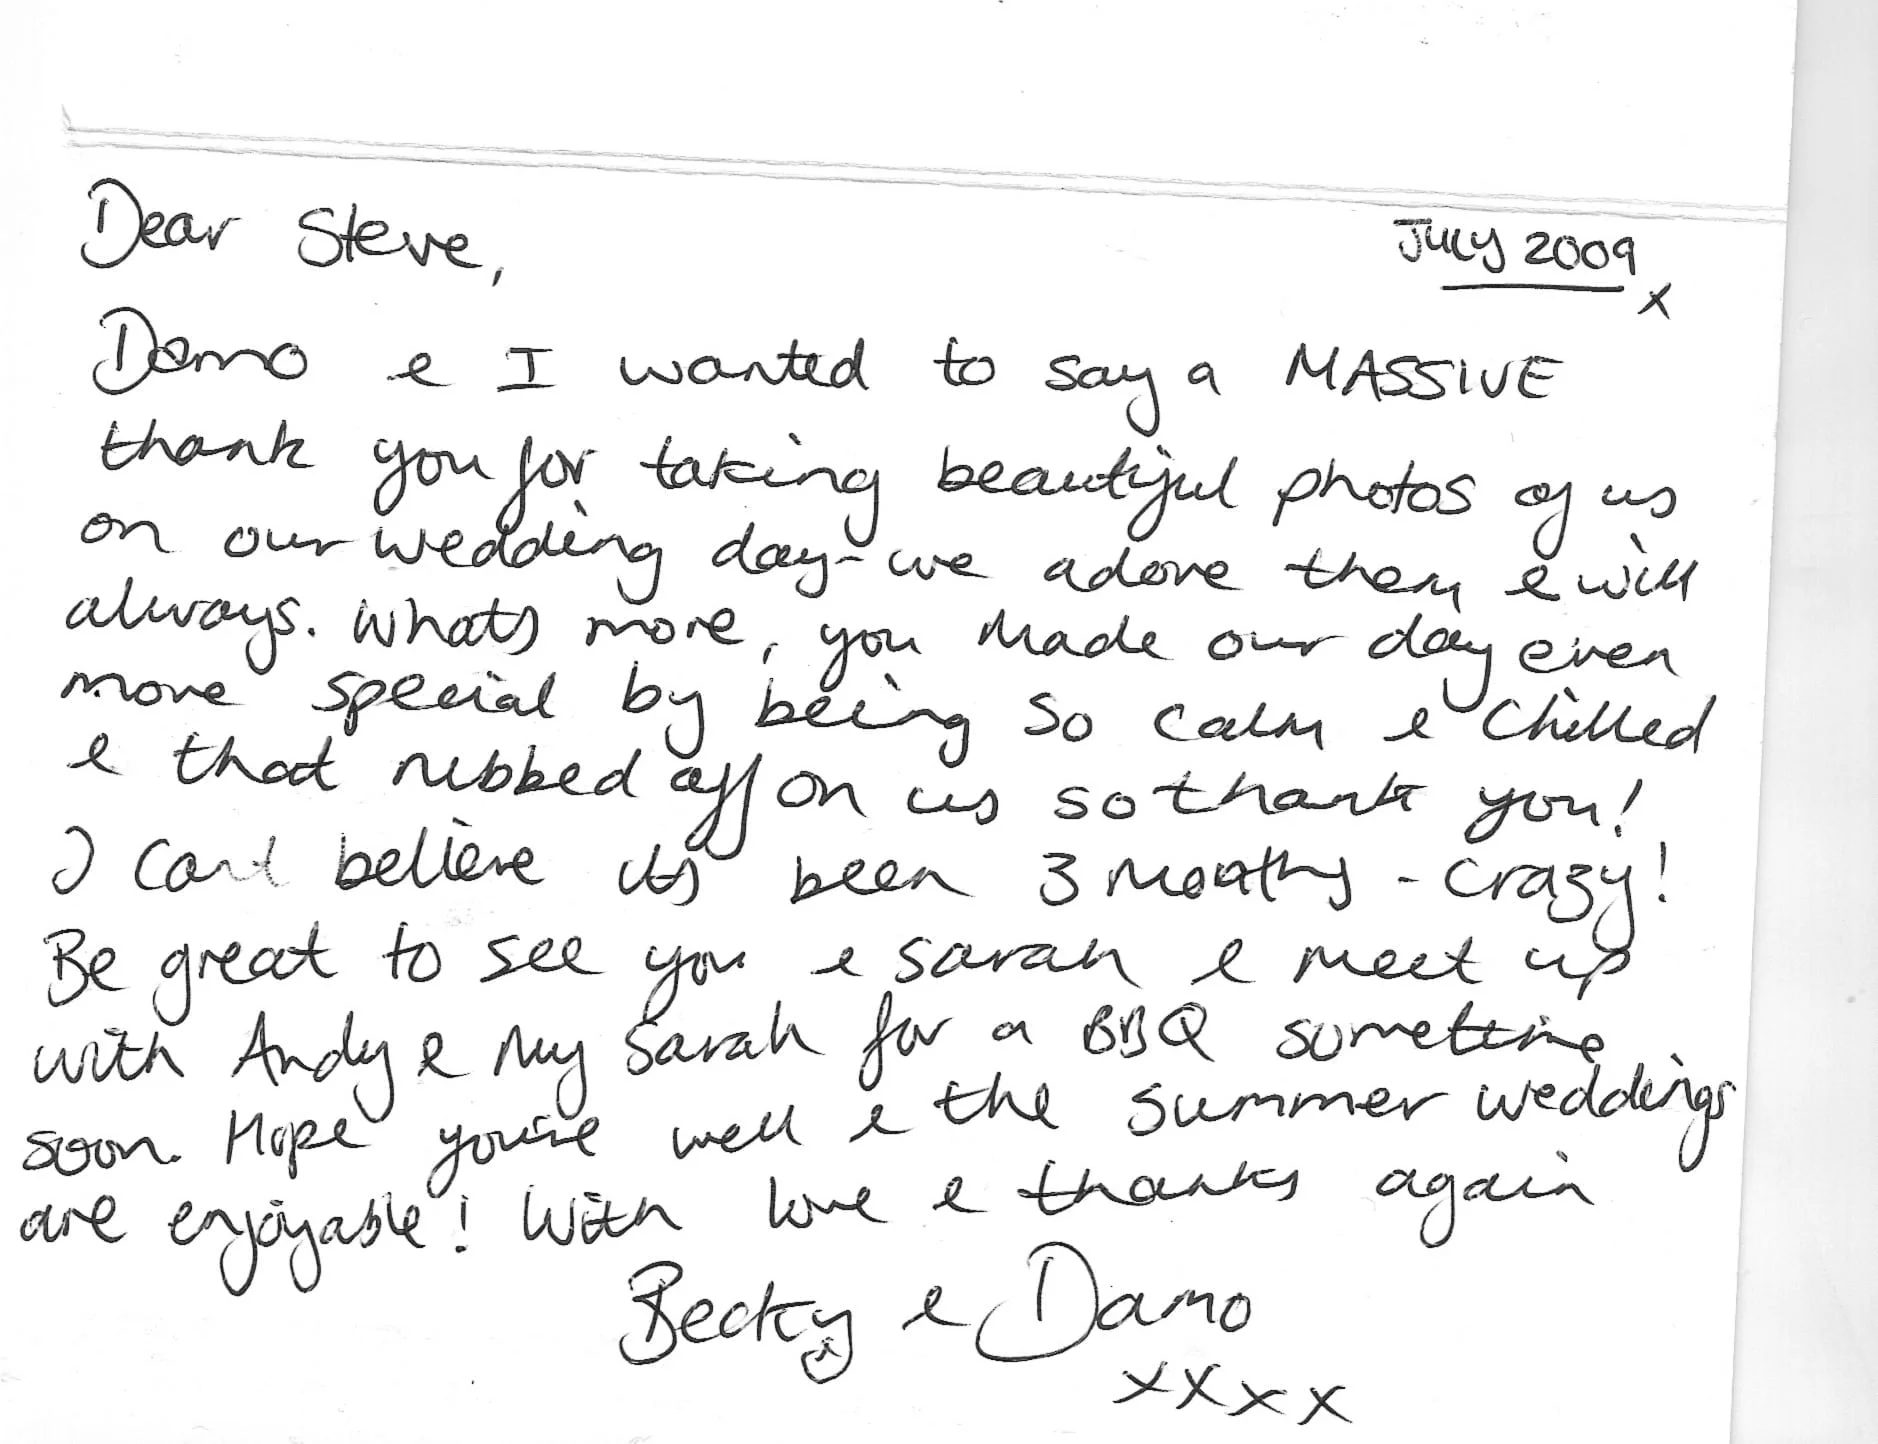 Dear Steve,
July 2009
x
Damo & I wanted to say a MASSIVE
thank you for taking beautiful photos of us
on our wedding day - we adore them & will
always. Whats more, you made our day even
more special by being so calm & chilled
& that rubbed off on us so thank you!
I cant believe its been 3 months - crazy!
Be great to see you & sarah & meet up
with Andy & my Sarah for a BBQ sometime
soon. Hope you're well & the summer weddings
are enjoyable! With love & thanks again
Becky & Damo
xxxx